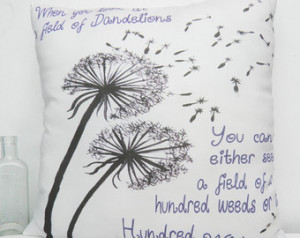 When you look at
a field of Dandelions
You can
either see
a field of a
hundred weeds or
Hundred